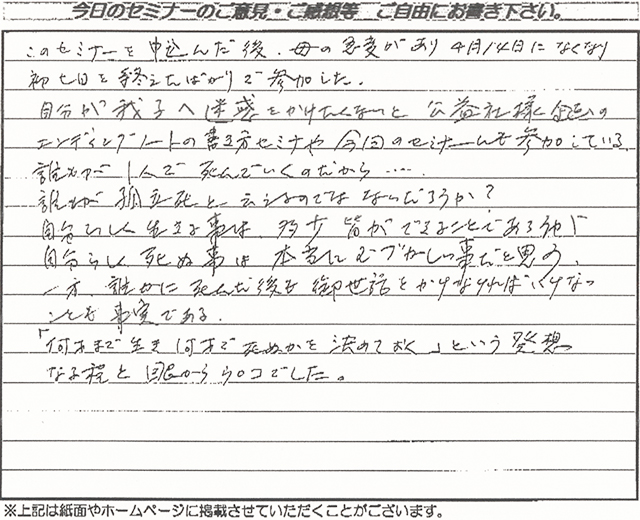 今日のセミナーのご意見・ご感想等　ご自由にお書き下さい。
このセミナーを申込んだ後、母の急変があり4月14日になくなり
初七日を終えたばかりで参加した。
自分が我子へ迷惑をかけたくないと公益社様企画の
エンディングノートの書き方セミナや今回のセミナーにも参加している。
誰もが1人で死んでいくのだから……
誰もが孤立死と云えるのではないだろうか？
自分らしく生きる事は、多少皆ができることであろうが
自分らしく死ぬ事は本当にむづかしい事だと思う。
一方、誰かに死んだ後を御世話をかけなければいけない
ことも事実である。
「何才まで生き何才で死ぬかを決めておく」という発想
なる程と目からウロコでした。
※上記は紙面やホームページに掲載させていただくことがございます。